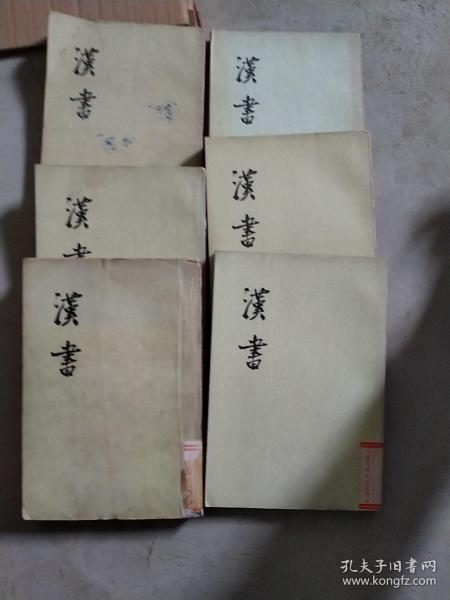 漢書
漢書
漢書
漢書
漢書
漢書
孔夫子旧书网
www.kongfz.com